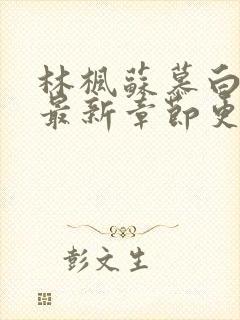 林楓蘇慕白
最新章節更
彭文生